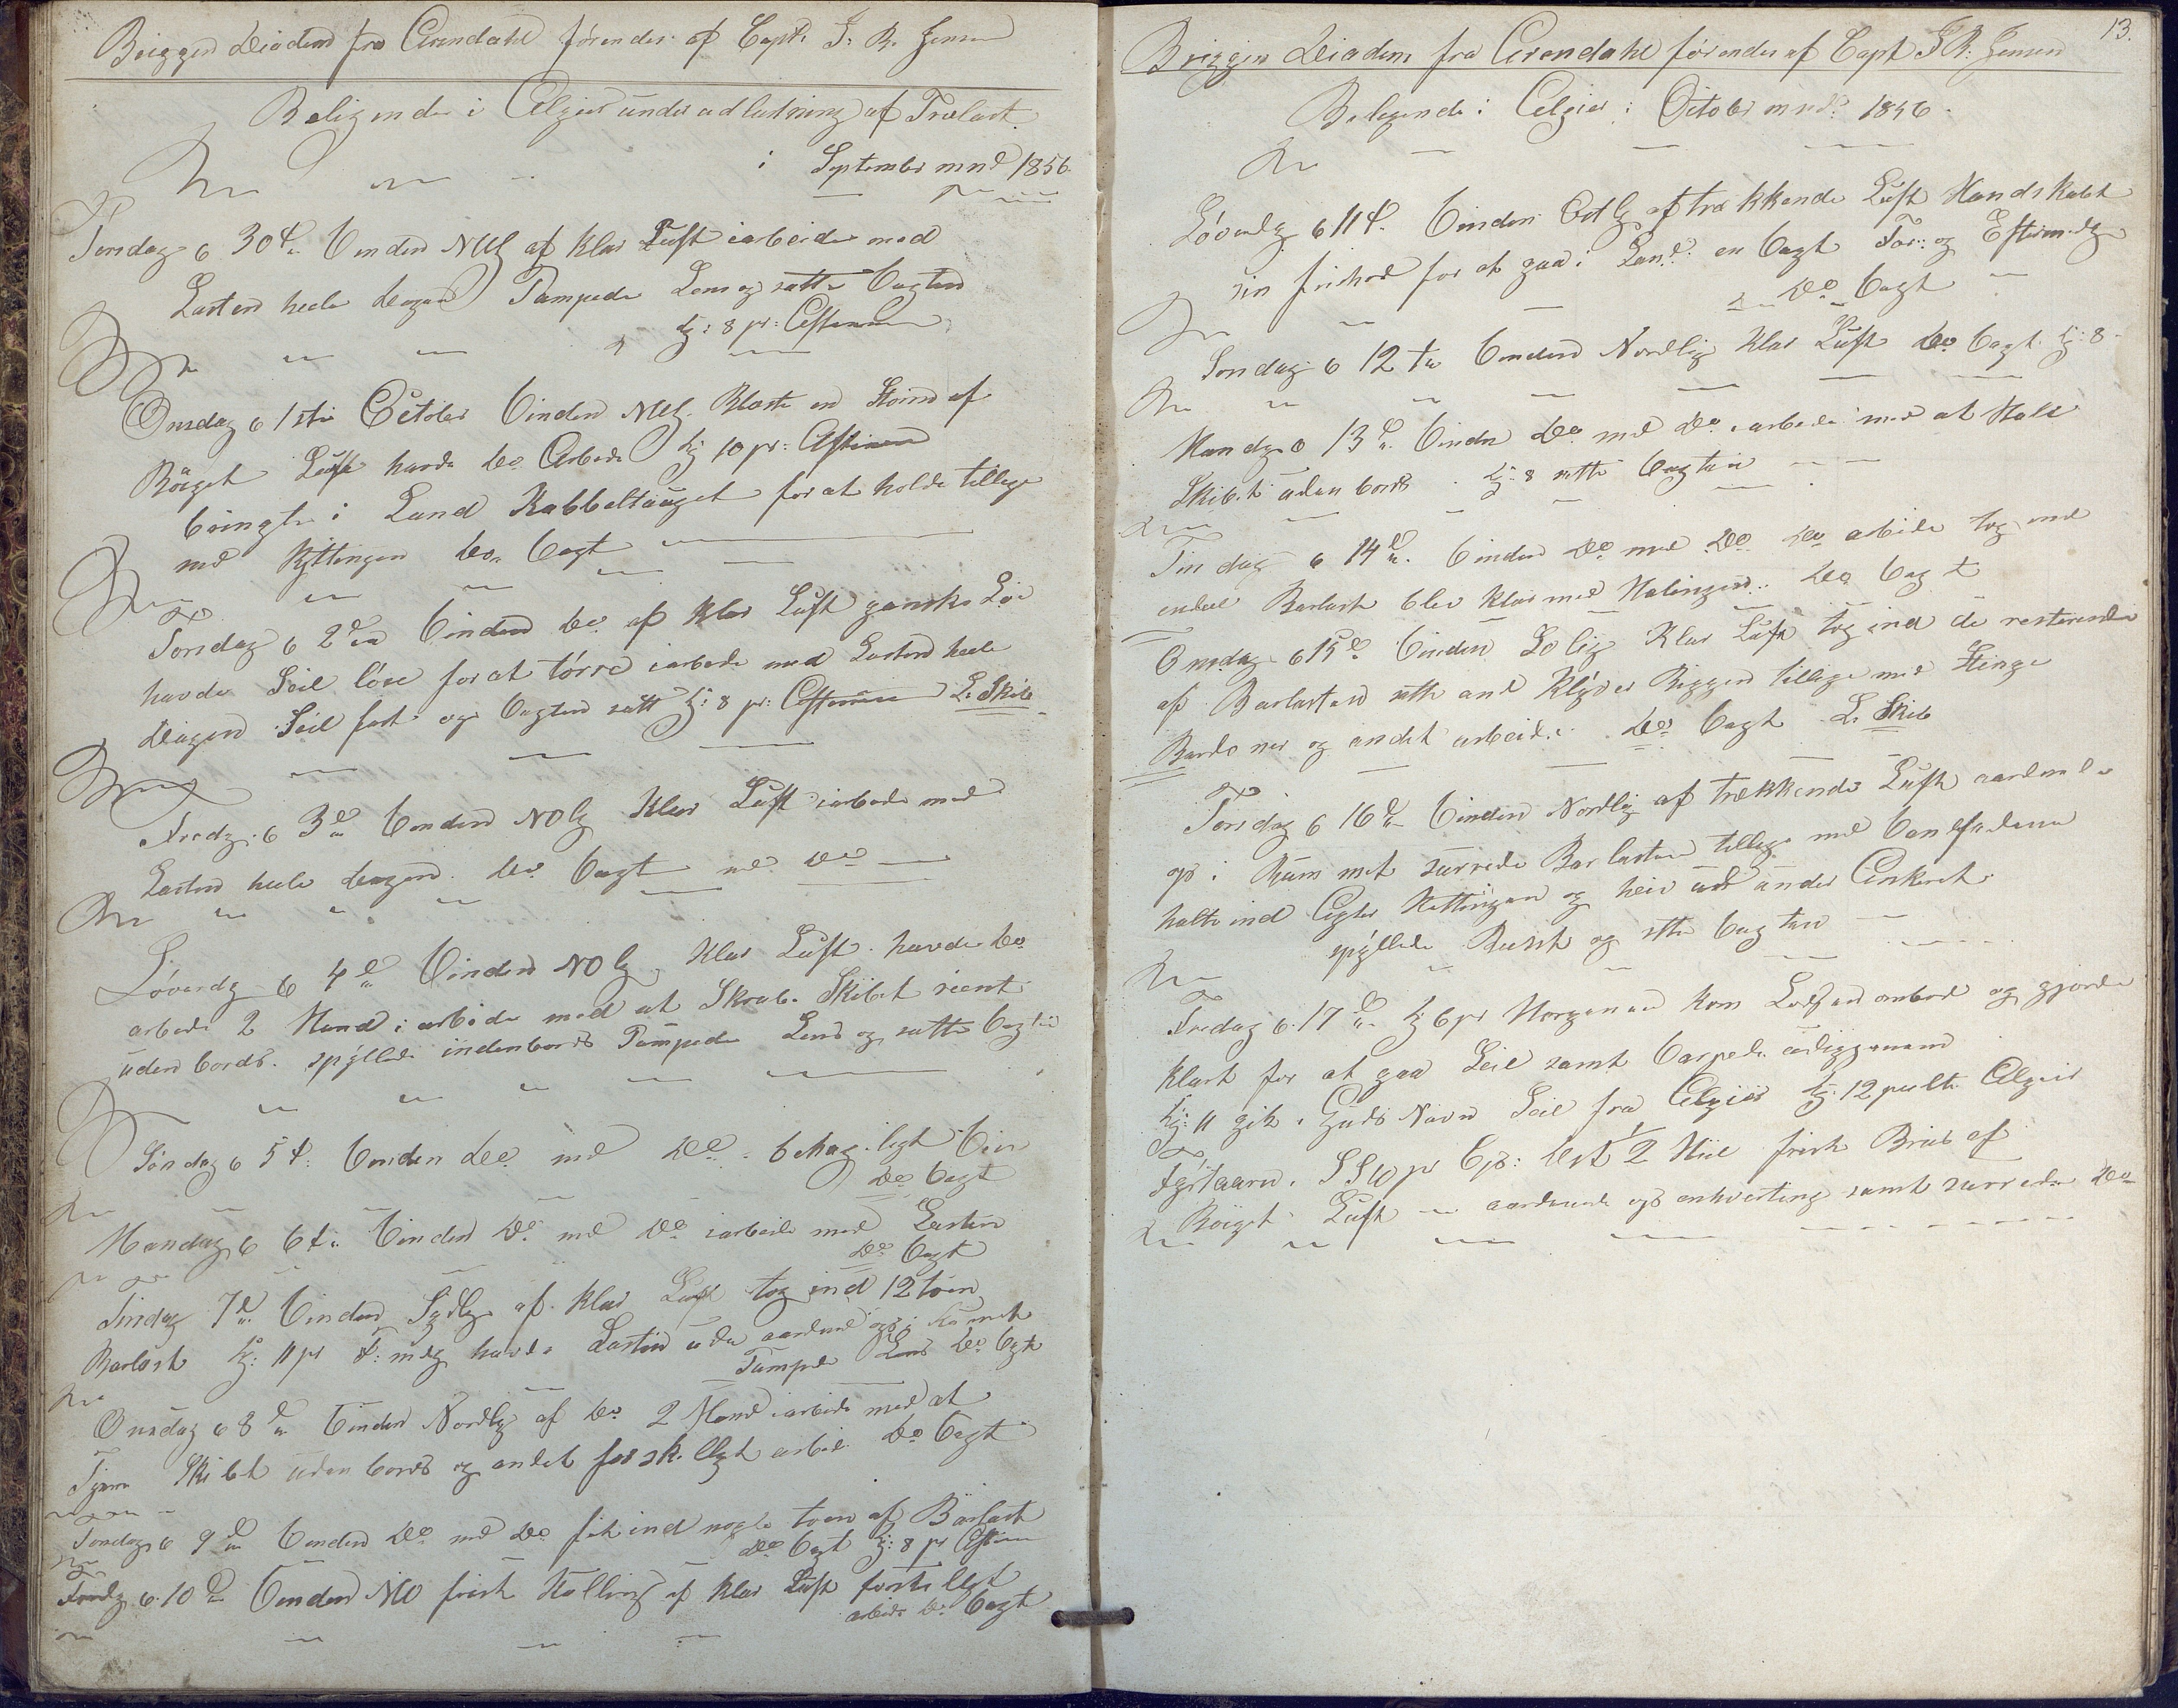 Briggen Diadem fra Arendahl førendes af Capt. J. R. Jensen
Beligende i Algier under udlosning af Trælast
i September mnd 1856
Tirsdag d 30te Vinden NVlg af klar Luft iarbeide med
Lasten heele Dagen Pampede Lens og satte Vagten
kj: 8 pr: Aftenen
Onsdag d 1ste October Vinden NVlg. Blæste en Storm af
Böiget Luft havde do Arbeide kj 10 pr: Aftenen
bringte i Land Kabbeltauget for at holde tillige
med Kjttingen do Vagt
Torsdag d 2den Vinden do af klar Luft ganske Løi
havde Seil løse for at tørre iarbeide med Lasten heele
Dagen Seil fast og Vagten satt kj: 8 pr: Aftenen L. Skib
Fredg. d 3de Vinden NOlg klar Luft iarbeide med
Lasten heele dagen. do Vagt med do
Løverdg d 4de Vinden NOlg klar Luft. havde do
arbeide 2 Mand i arbeide med at Skrabe Skibet reent
uden bords. spÿllede indenbords Pampede Lens og satte Vagten
Søndag d 5te. Vinden do med do behageligt Veir
do Vagt
Mandag d 6te Vinden do med do iarbeide med Lasten
do Vagt
Tirsdag 7de Vinden Sydlg af klar Luft tog ind 12 toen
Barlast kj: 11 pr F: mdg havde Lasten ude aardned op i Rummet
Pampede Lens do Vagt
Onsdag d 8de Vinden Nordlg af do 2 Mand iarbeide med at
Tjære Skibet uden bords og andet forskelligt arbeid do Vagt
Torsdag d 9de Vinden do med do fik ind nogle toen af Barlast
do Vagt kj: 8 pr Aftenen
Fredg d. 10de Vinden NO frisk Kulling af klar Luft forskelligt
arbeide do Vagt
13.
Briggen Diadem fra Arendahl førendes af Capt J R: Jensen
Beligende i Algier i October mnd. 1856
Løverdg d 11te. Vinden Ostlg af trækkende Luft Mandskabet
sin frihed for at gaa i Land. en Vagt For: og Eftermdg
do Vagt
Søndag d 12te Vinden Nordlig klar Luft do Vagt kj: 8
Mandg d 13de Vinden do med do iarbeide med at Male
Skibet uden bords kj: 8 satte Vagten
Tirsdag d 14de. Vinden do med do do arbeide tog ind
endeel Barlast blev klar med Malingen do Vagt
Onsdag d 15de Vinden Solig klar Luft tog ind de resterende
af Barlasten satte and Klÿver Riggen tillige med Stenge
Bardoner og andet arbeide do Vagt L. Skib
Torsdag d 16de Vinden Nordlig af trækkende Luft aardnede
op i Rummet surrede Barlasten tillige med Vandfadene
halte ind Agter Kettingen og heiv ud under Ankeret
spÿllede Dækk og satte Vagten
Fredag d. 17de kj 6 pr Morgenen kom Lodsen ombord og gjorde
klart for at gaa Seil samt Varpede udiggenem
kj: 11 gik i Guds Navn Seil fra Algier kj: 12 peilte Algier
Fÿrtaarn. SSW pr Cps: Dst 1/2 Miil frisk Briis af
Böiget Luft aardnede op enhverting samt surrede do